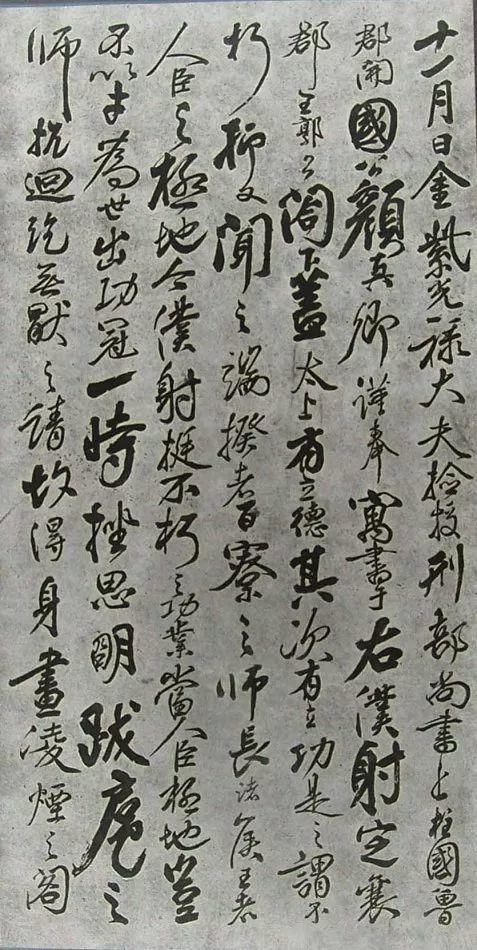 十一月日金紫光禄大夫檢校刑部尚書上柱國魯
郡開國公顏真卿謹奉寓書于右僕射定襄
郡王郭公閤下蓋太上有立德其次有立功是之謂不
朽抑又聞之端揆者百寮之師長諸侯王者
人臣之極地今僕射挺不朽之功業當人臣極地豈
不以才為世出功冠一時挫思明跋扈之
師抗迴紇無猒之請故得身畫凌煙之閣